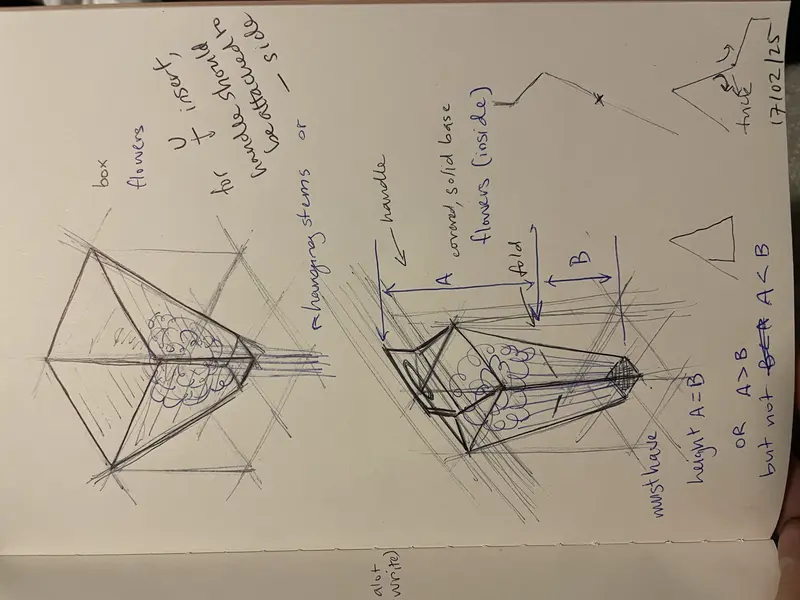 box
flowers
if insert,
for should
handle should to
be attached to
side
hanging stems or
handle
A
covered, solid base
flowers (inside)
fold
B
must have
height A = B
OR A > B
but not A < B
trick
17/02/25
alot
write)